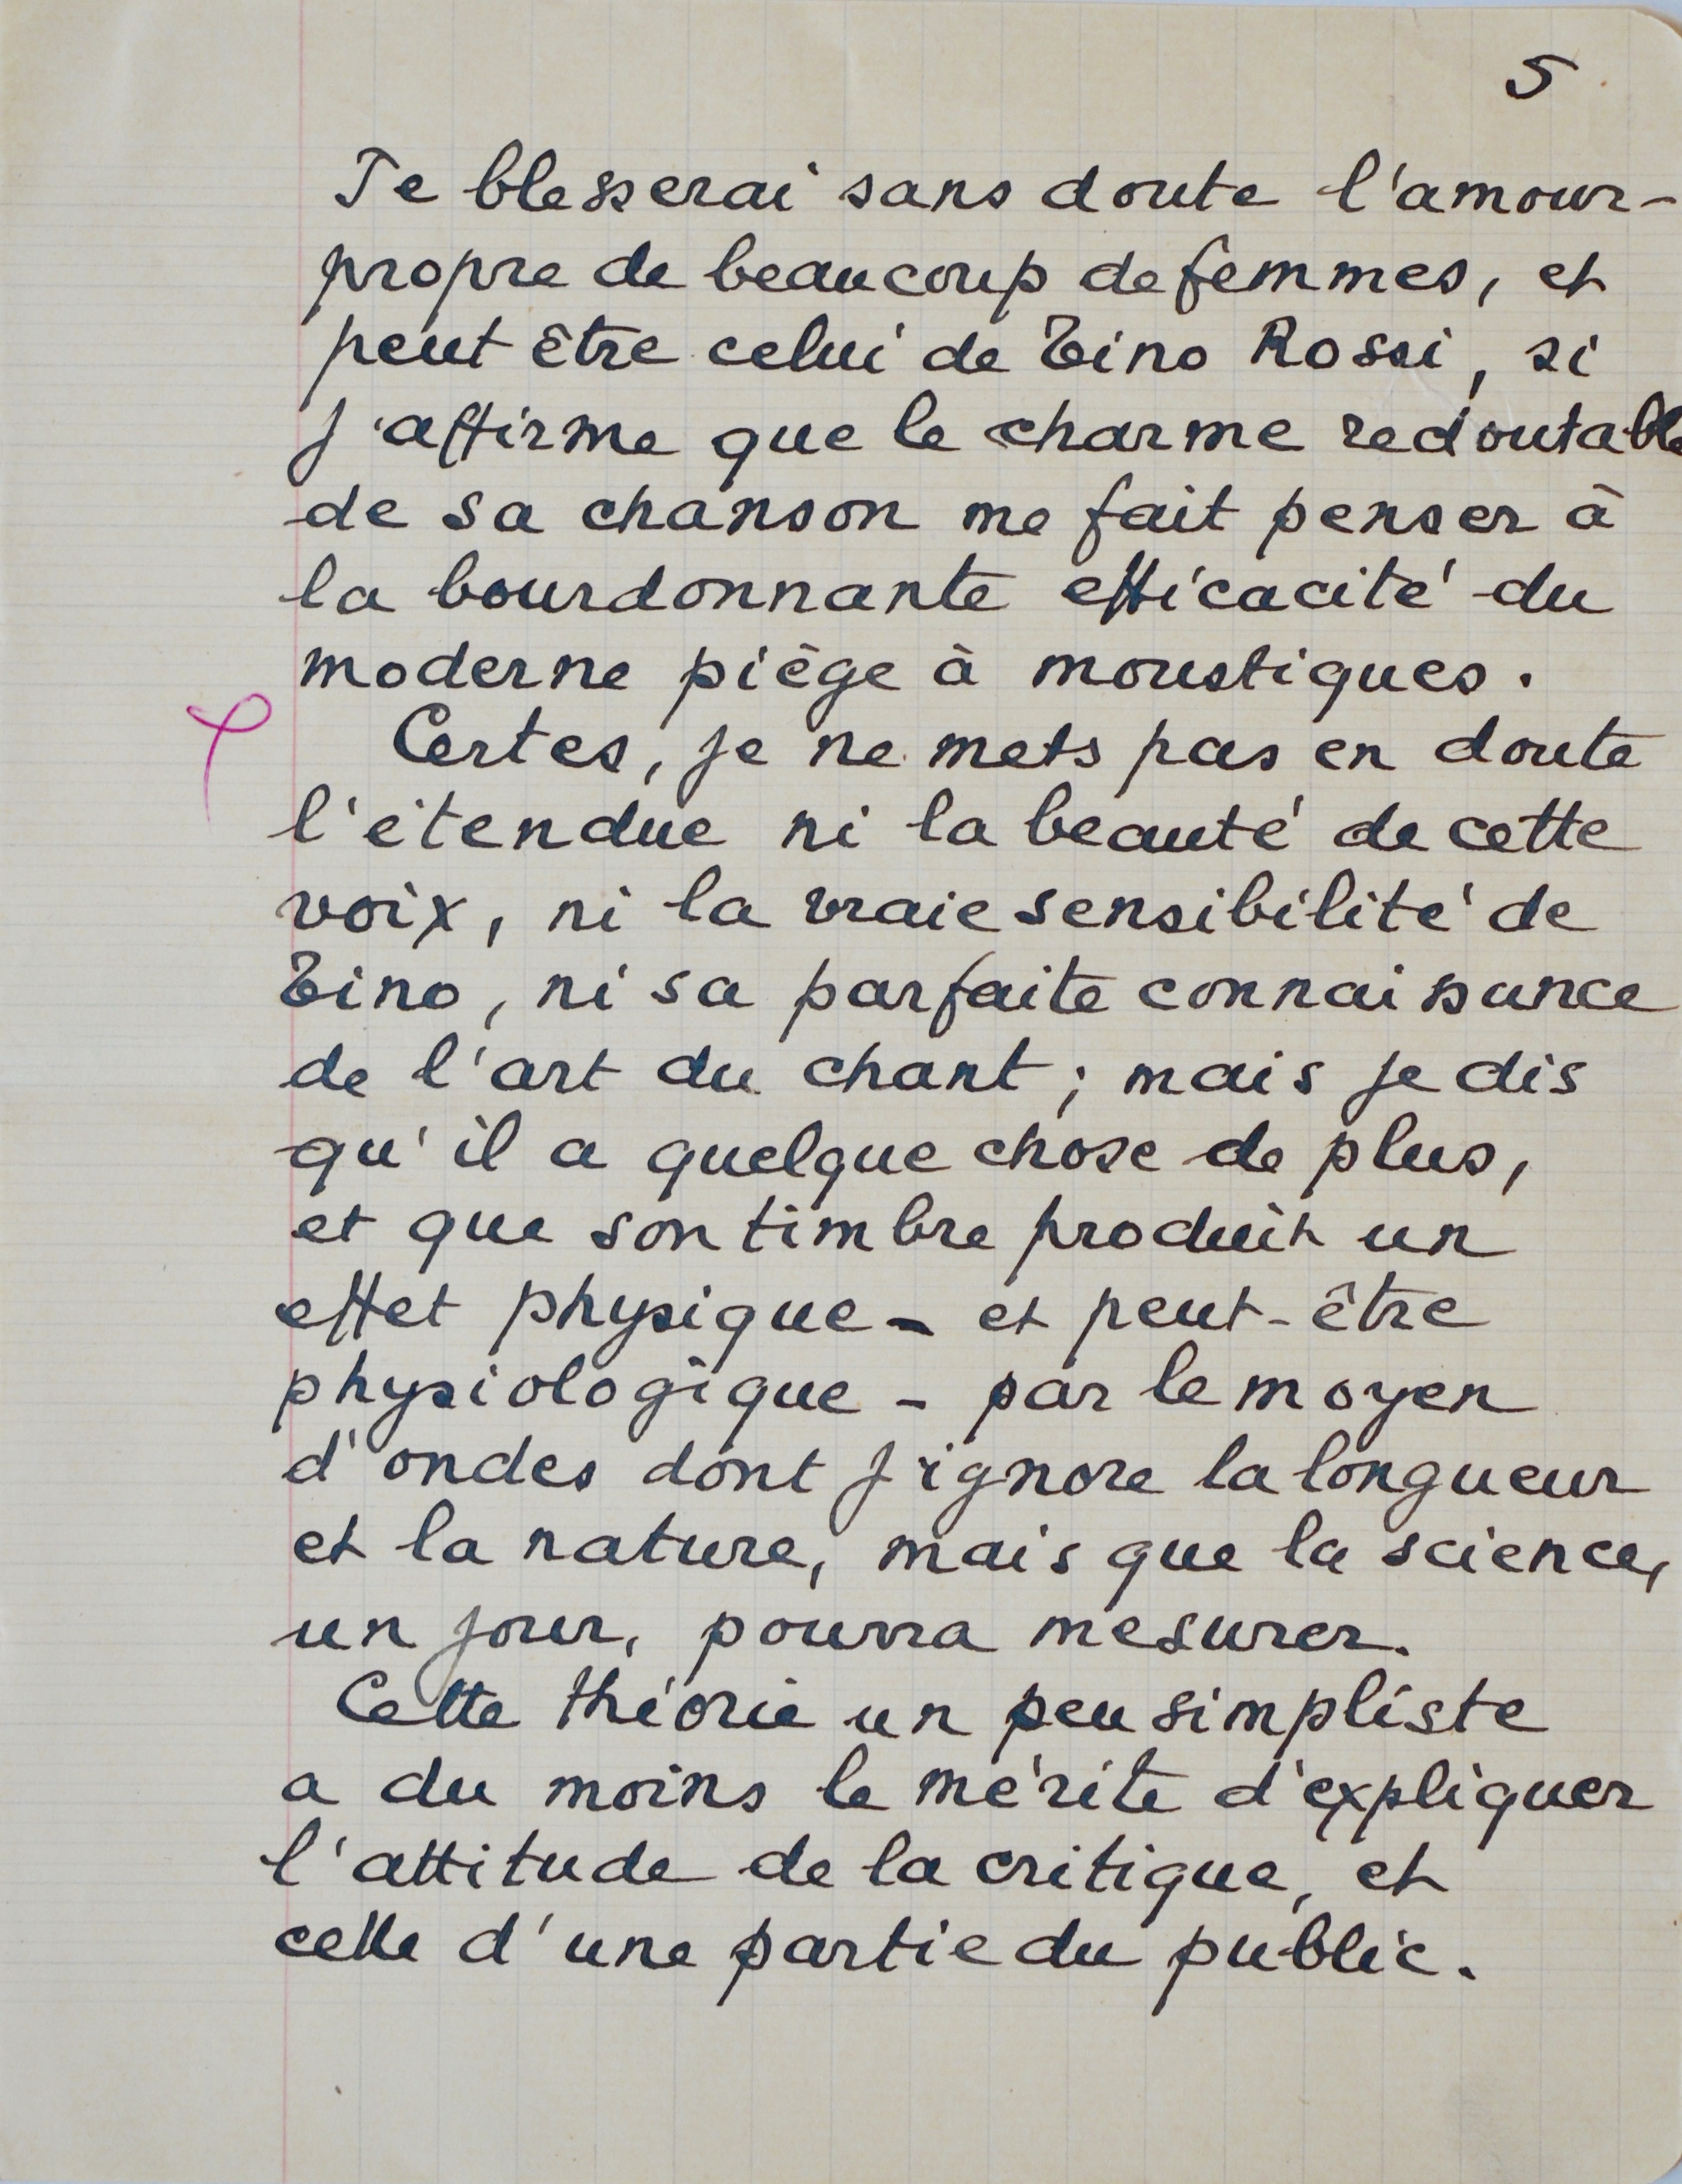 5
Je blesserai sans doute l'amour-
propre de beaucoup de femmes, et
peut être celui de Tino Rossi, si
j'affirme que le charme redoutable
de sa chanson me fait penser à
la bourdonnante efficacité du
moderne piège à moustiques.
Certes, je ne mets pas en doute
l'étendue ni la beauté de cette
voix, ni la vraie sensibilité de
Tino, ni sa parfaite connaissance
de l'art du chant ; mais je dis
qu'il a quelque chose de plus,
et que son timbre produit un
effet physique - et peut-être
physiologique - par le moyen
d'ondes dont j'ignore la longueur
et la nature, mais que la science,
un jour, pourra mesurer.
Cette théorie un peu simpliste
a du moins le mérite d'expliquer
l'attitude de la critique, et
celle d'une partie du public.